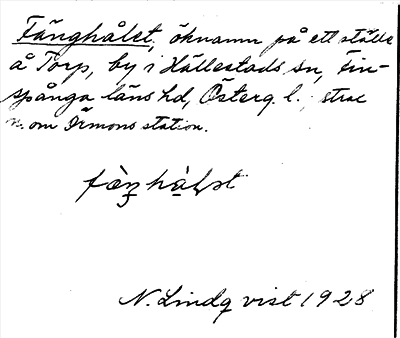 Fånghålet, öknamn på ett ställe
å Torp, by i Hällestads sn, Fin-
spånga läns hd, Österg. l.; strax
n. om Ormons station.
N. Lindqvist 1928